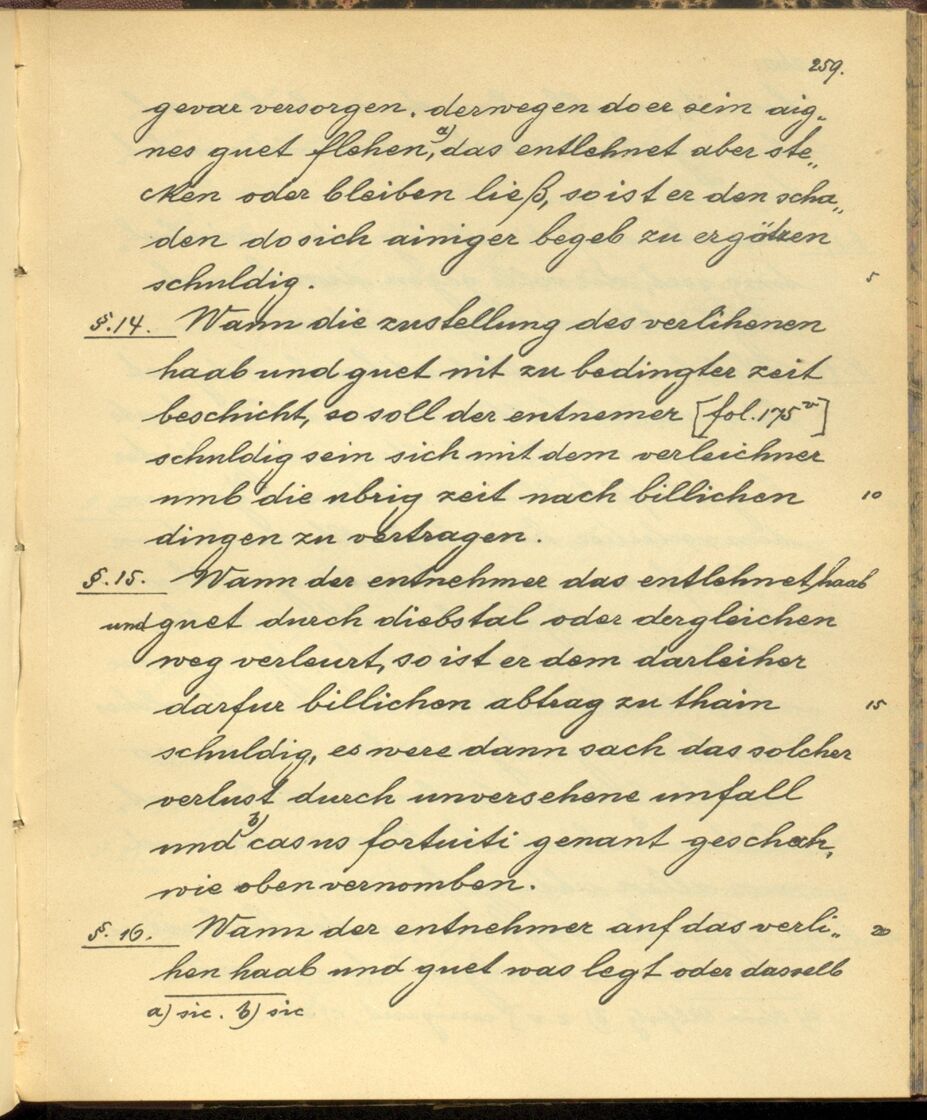 259.
gevar versorgen. derwegen do er sein aig„
nes guet flehen,a) das entlehnet aber ste„
cken oder bleiben ließ, so ist er den scha„
den do sich ainiger begeb zu ergötzen
schuldig. 5
§. 14. Wann die zustellung des verlihenen
haab und guet nit zu bedingter zeit
beschicht, so soll der entnemer [fol. 175v]
schuldig sein sich mit dem verleichner
umb die ubrig zeit nach billichen 10
dingen zu vertragen.
§. 15. Wann der entnehmer das entlehnet haab
und guet durch diebstal oder dergleichen
weg verleurt, so ist er dem darleiher
darfur billichen abtrag zu thain 15
schuldig, es were dann sach das solcher
verlust durch unversehene unfall
und b) casus fortuiti genant geschach,
wie oben vernomben.
§. 16. Wann der entnehmer auf das verli„ 20
hen haab und guet was legt oder dasselb
a) sic. b) sic